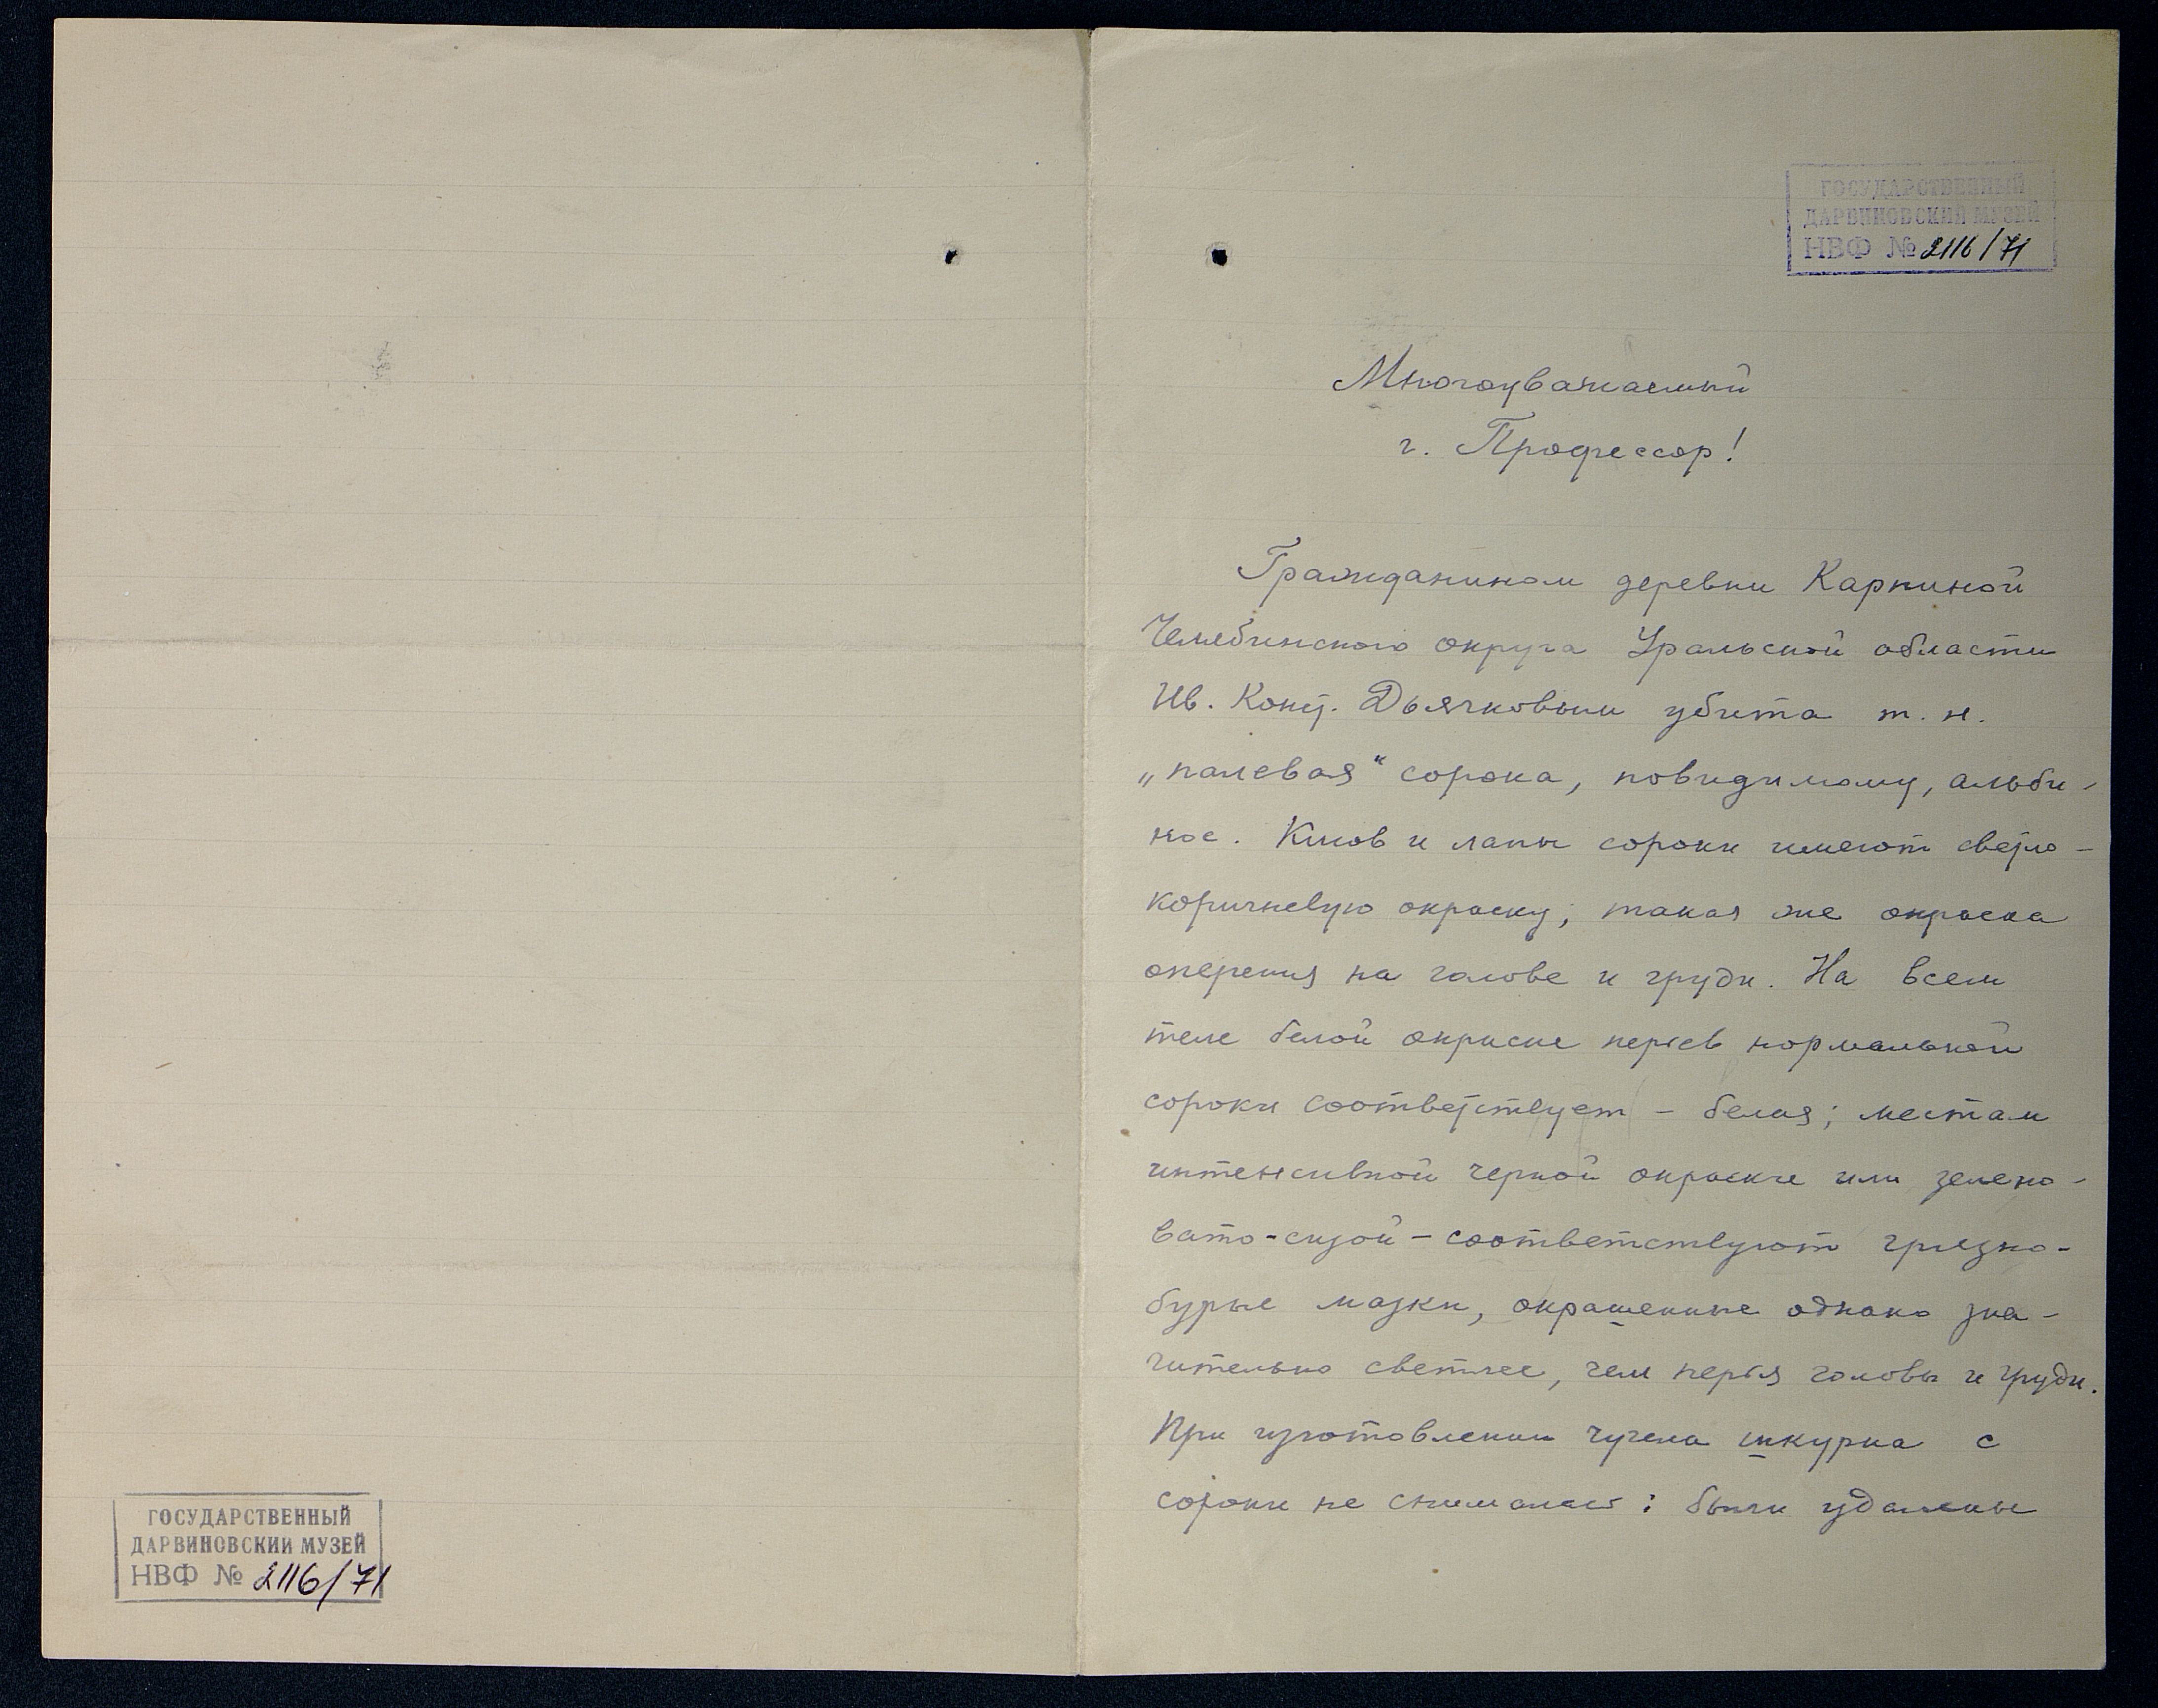 ГОСУДАРСТВЕННЫЙ
ДАРВИНОВСКИЙ МУЗЕЙ
НВФ № 2116/71
Многоуважаемый
г. Профессор!
Гражданином деревни Карпиной
Челябинского округа Уральской области
Ив. Конст. Дьячковым убита т. н.
„палевая“ сорока, повидимому, альби-
нос. Клюв и лапы сороки имеют светло-
коричневую окраску; такая же окраска
оперения на голове и груди. На всем
теле белой окраске перьев нормальной
сороки соответствует – белая; местам
интенсивной черной окраски или зелено-
вато-сизой – соответствуют грязно-
бурые мазки, окрашенные однако зна-
чительно светлее, чем перья головы и груди.
При изготовлении чучела шкурка с
сороки не снималась: были удалены
ГОСУДАРСТВЕННЫЙ
ДАРВИНОВСКИЙ МУЗЕЙ
НВФ № 2116/71